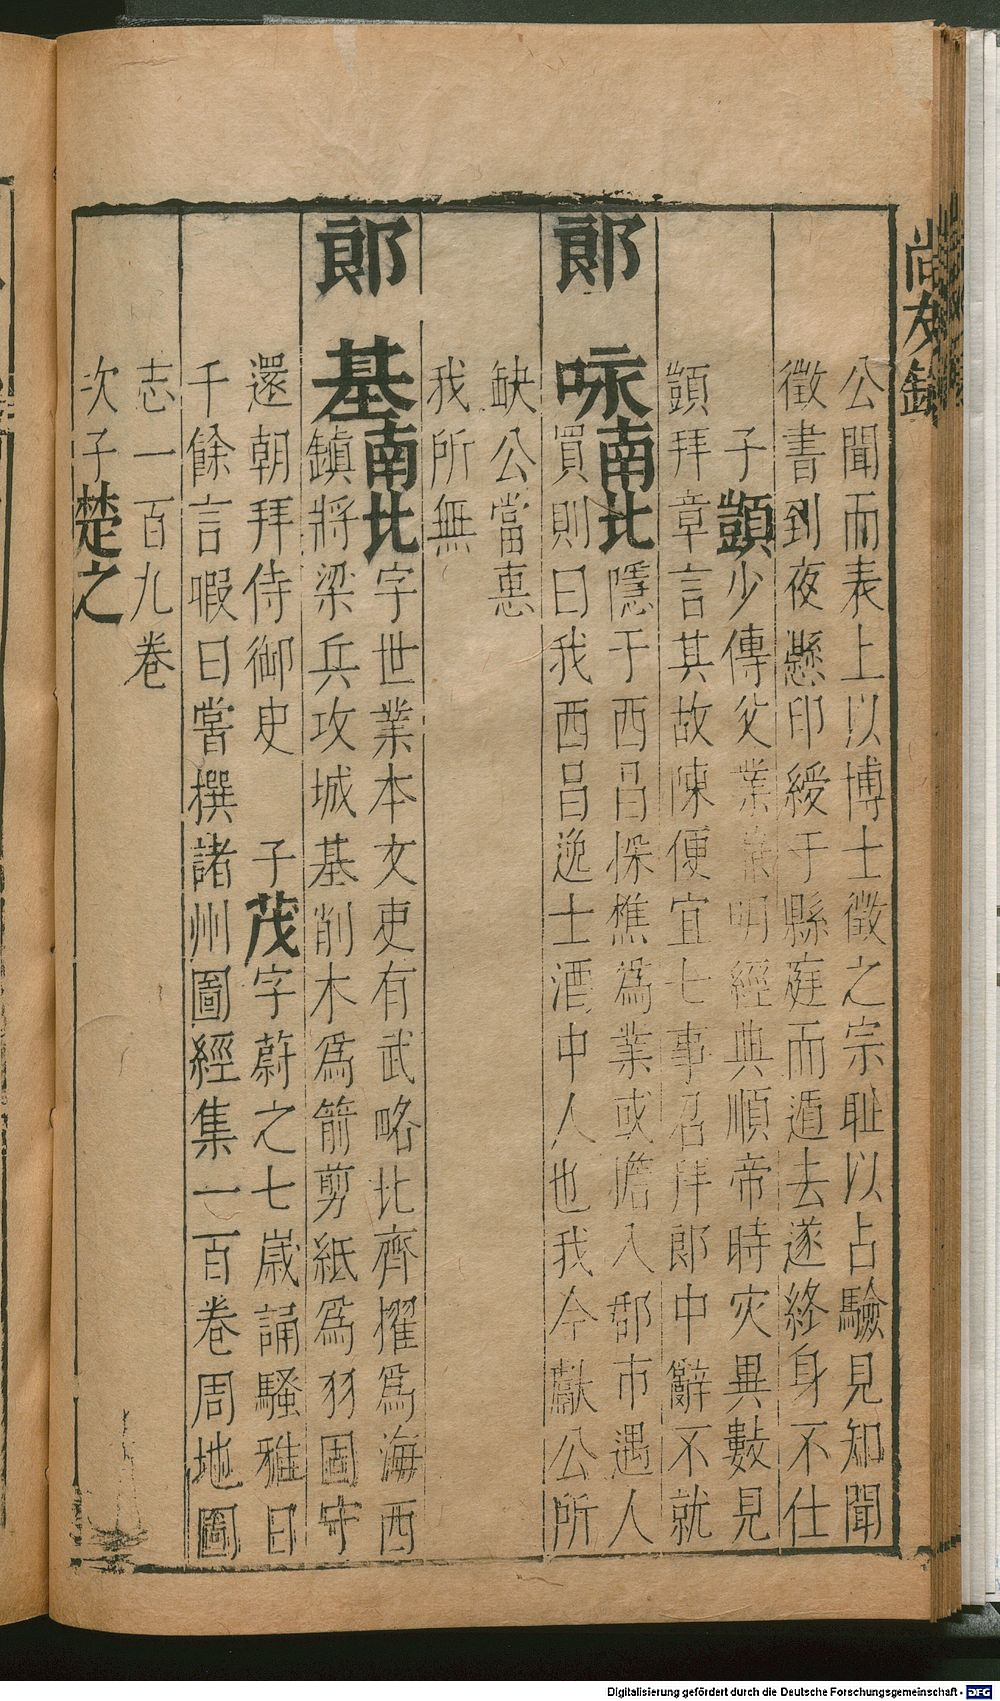 尚友錄
公聞而表上以博士徵之宗耻以占驗見知聞
徵書到夜懸印綬于縣庭而遁去遂終身不仕
子顗少傳父業兼明經典順帝時灾異數見
顗拜章言其故陳便宜七事召拜郎中辭不就
郎咏南北隱于西昌採樵為業或擔入郡市遇人
買則曰我西昌逸士酒中人也我今獻公所
缺公當惠
我所無
郎基南北字世業本文吏有武略北齊擢為海西
鎮將梁兵攻城基削木為箭剪紙為羽固守
還朝拜侍御史 子茂字蔚之七歲誦騷雅日
千餘言暇日嘗撰諸州圖經集一百卷周地圖
志一百九卷
次子楚之
Digitalisierung gefördert durch die Deutsche Forschungsgemeinschaft - DFG